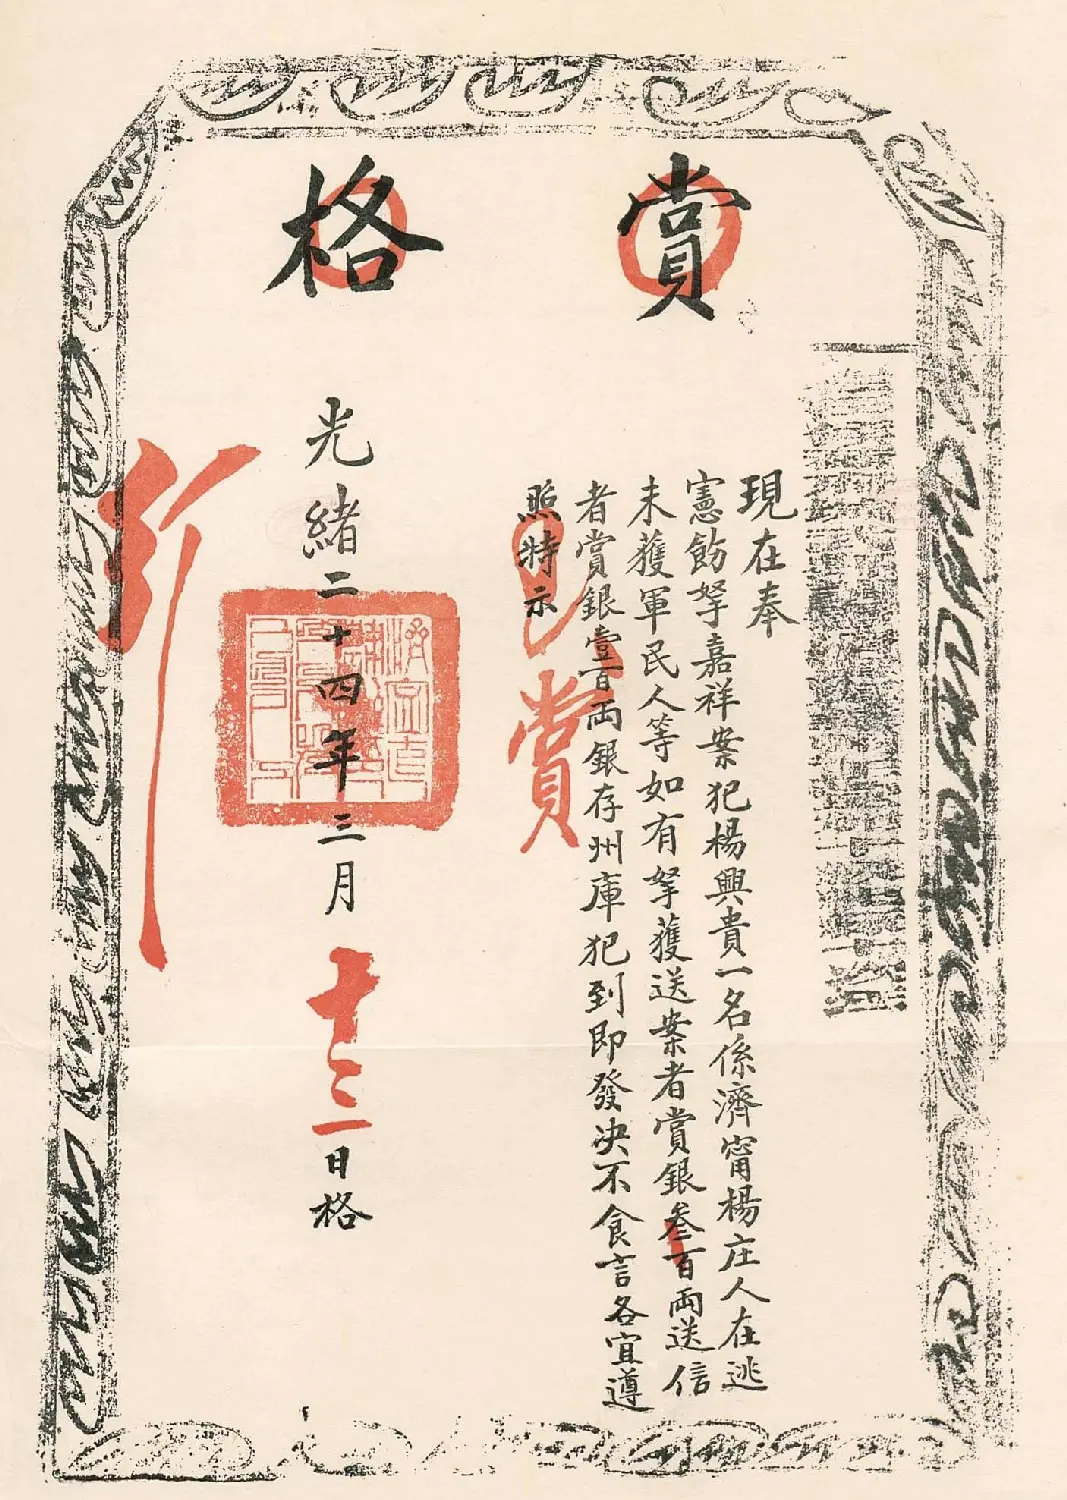 賞格
現在奉
憲飭拏嘉祥案犯楊興貴一名係濟甯楊庄人在逃
未獲軍民人等如有拏獲送案者賞銀叁百兩送信
者賞銀壹百兩銀存州庫犯到即發決不食言各宜遵
照特示
賞
光緒二十四年三月十二日格